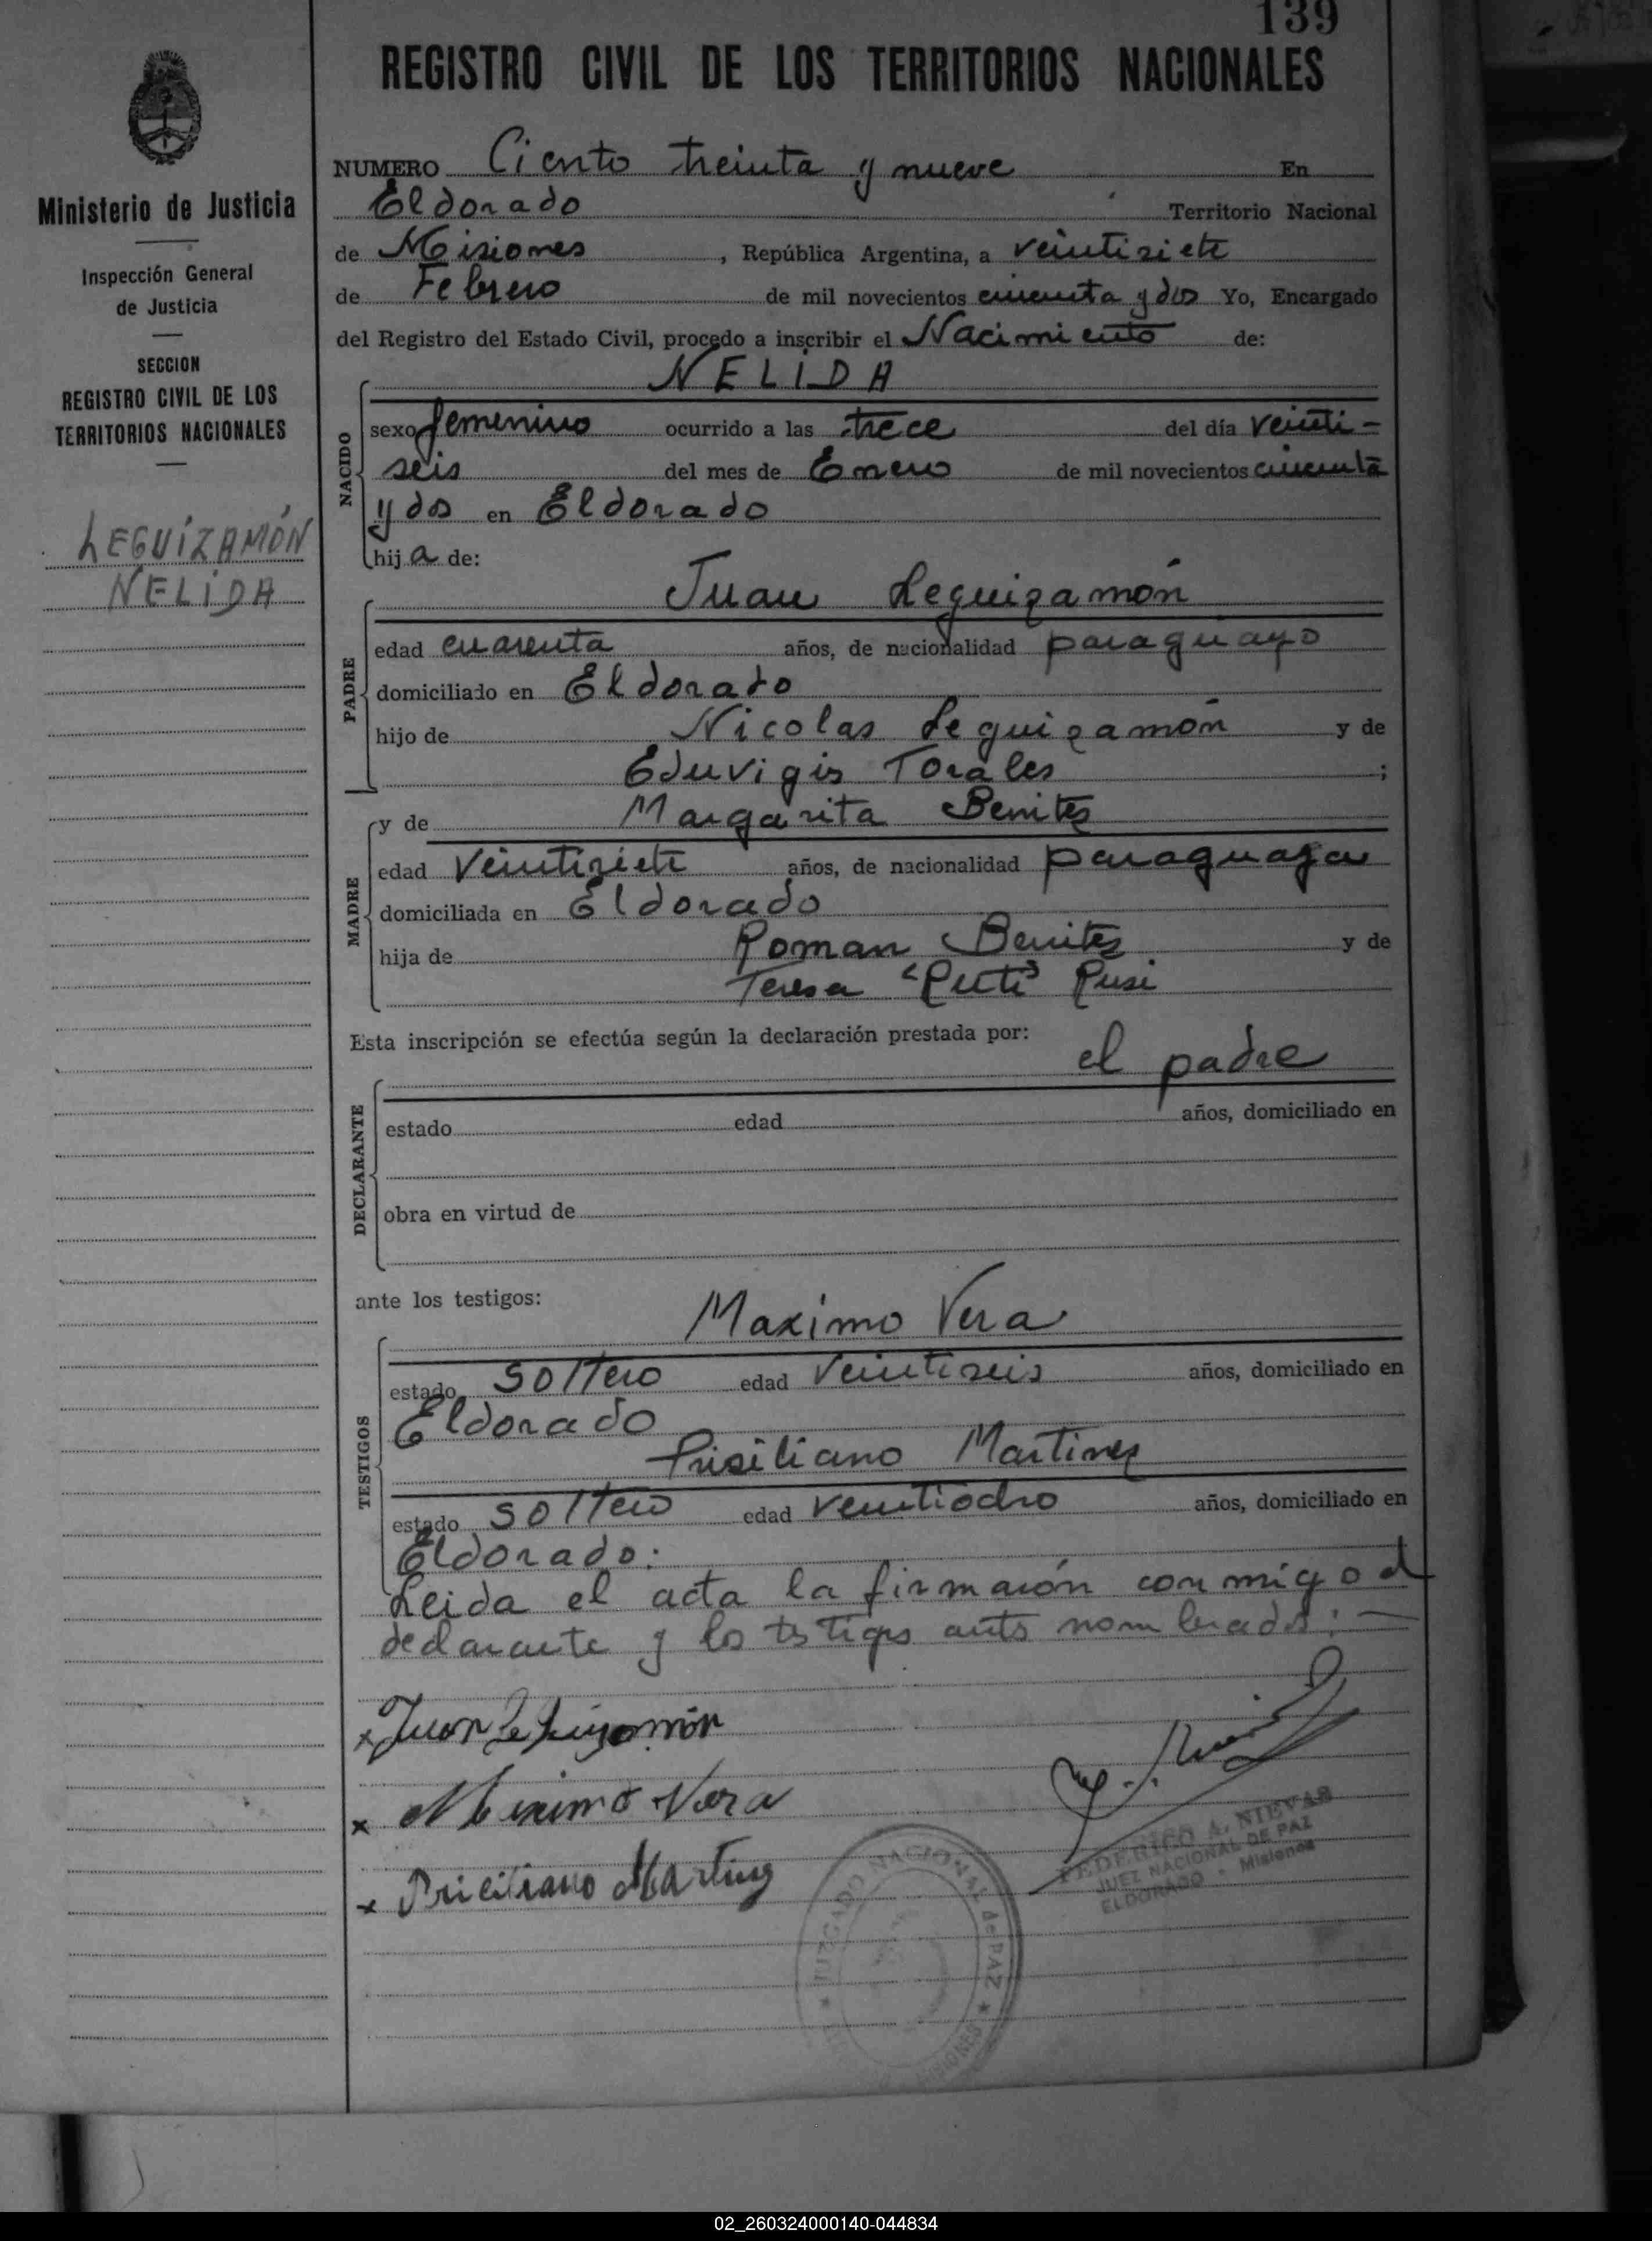 139
REGISTRO CIVIL DE LOS TERRITORIOS NACIONALES
Ministerio de Justicia
Inspección General
de Justicia
SECCION
REGISTRO CIVIL DE LOS
TERRITORIOS NACIONALES
LEGUÍZAMÓN
NELIDA
NUMERO Ciento treinta y nueve En
Eldorado Territorio Nacional
de Misiones, República Argentina, a veintisiete
de Febrero de mil novecientos cincuenta y dos Yo, Encargado
del Registro del Estado Civil, procedo a inscribir el Nacimiento de:
NELIDA
NACIDO
sexo femenino ocurrido a las trece del día veinti-
seis del mes de Enero de mil novecientos cincuenta
y dos en Eldorado
hija de:
Juan Leguizamón
PADRE
edad cuarenta años, de nacionalidad paraguayo
domiciliado en Eldorado
hijo de Nicolas Leguizamón y de
Eduvigis Torales;
y de Margarita Benitez
MADRE
edad Veintisiete años, de nacionalidad paraguaya
domiciliada en Eldorado
hija de Roman Benitez y de
Teresa "Ruti" Rusi
Esta inscripción se efectúa según la declaración prestada por:
el padre
DECLARANTE
estado edad años, domiciliado en
obra en virtud de
ante los testigos:
Maximo Vera
TESTIGOS
estado soltero edad veintiseis años, domiciliado en
Eldorado
Prisiliano Martinez
estado soltero edad veintiocho años, domiciliado en
Eldorado:
Leida el acta la firmarón conmigo el
declarante y los testigos antes nombrados:
x Juan Leguizamón
x Maximo Vera
x Priciliano Martinez
FEDERICO A. NIEVAS
JUEZ NACIONAL DE PAZ
ELDORADO - Misiones
JUZGADO NACIONAL de PAZ
MISIONES
02_260324000140-044834